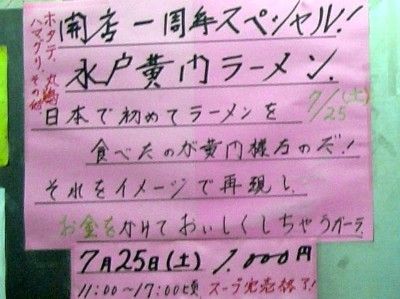 開店一周年スペシャル!
ホタテ、丸鶏
ハマグリ、その他
水戸黄門ラーメン
7/25(土)
日本で初めてラーメンを
食べたのが黄門様なのだ!
それをイメージで再現し、
お金をかけておいしくしちゃうガーラ
7月25日(土) 1.000円
11:00〜17:00頃 スープ完売終了!